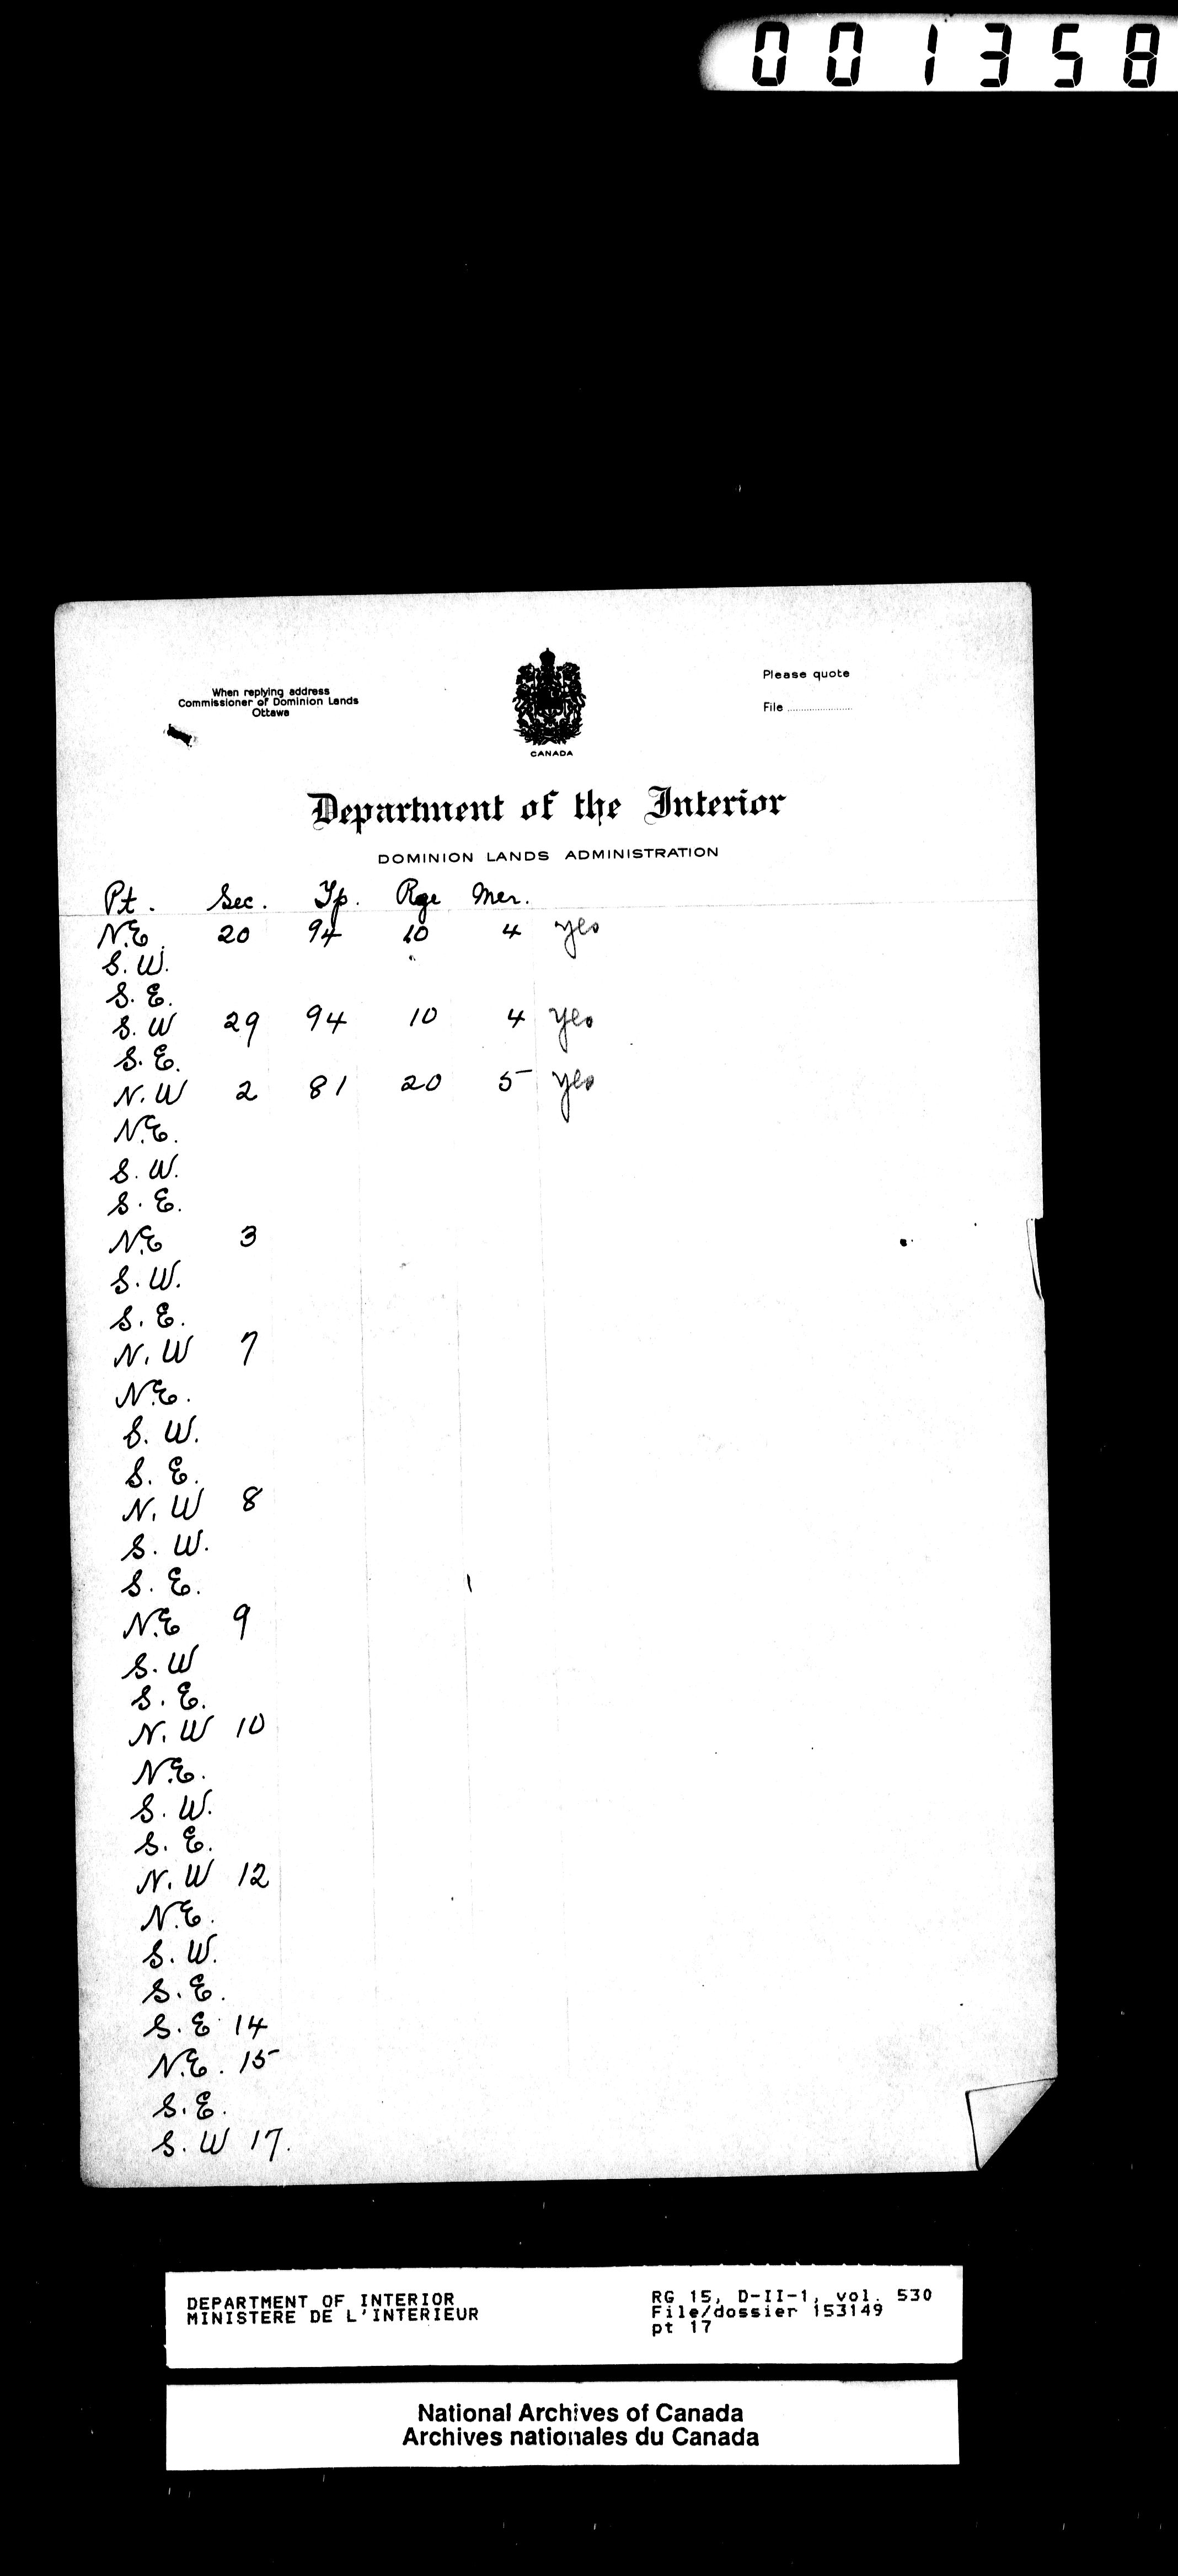 001358
When replying address
Commissioner of Dominion Lands
Ottawa
Please quote
File
CANADA
Department of the Interior
DOMINION LANDS ADMINISTRATION
Pt. Sec. Tp. Rge Mer.
N.E. 20 94 10 4 yes
S.W.
S.E.
S.W 29 94 10 4 yes
S.E.
N.W 2 81 20 5 yes
N.E.
S.W.
S.E.
N.E 3
S.W.
S.E.
N.W 7
N.E.
S.W.
S.E.
N.W 8
S.W.
S.E.
N.E 9
S.W
S.E.
N.W 10
N.E.
S.W.
S.E.
N.W 12
N.E.
S.W.
S.E.
S.E 14
N.E. 15
S.E.
S.W 17.
DEPARTMENT OF INTERIOR
MINISTERE DE L'INTERIEUR
RG 15, D-II-1, vol. 530
File/dossier 153149
pt 17
National Archives of Canada
Archives nationales du Canada